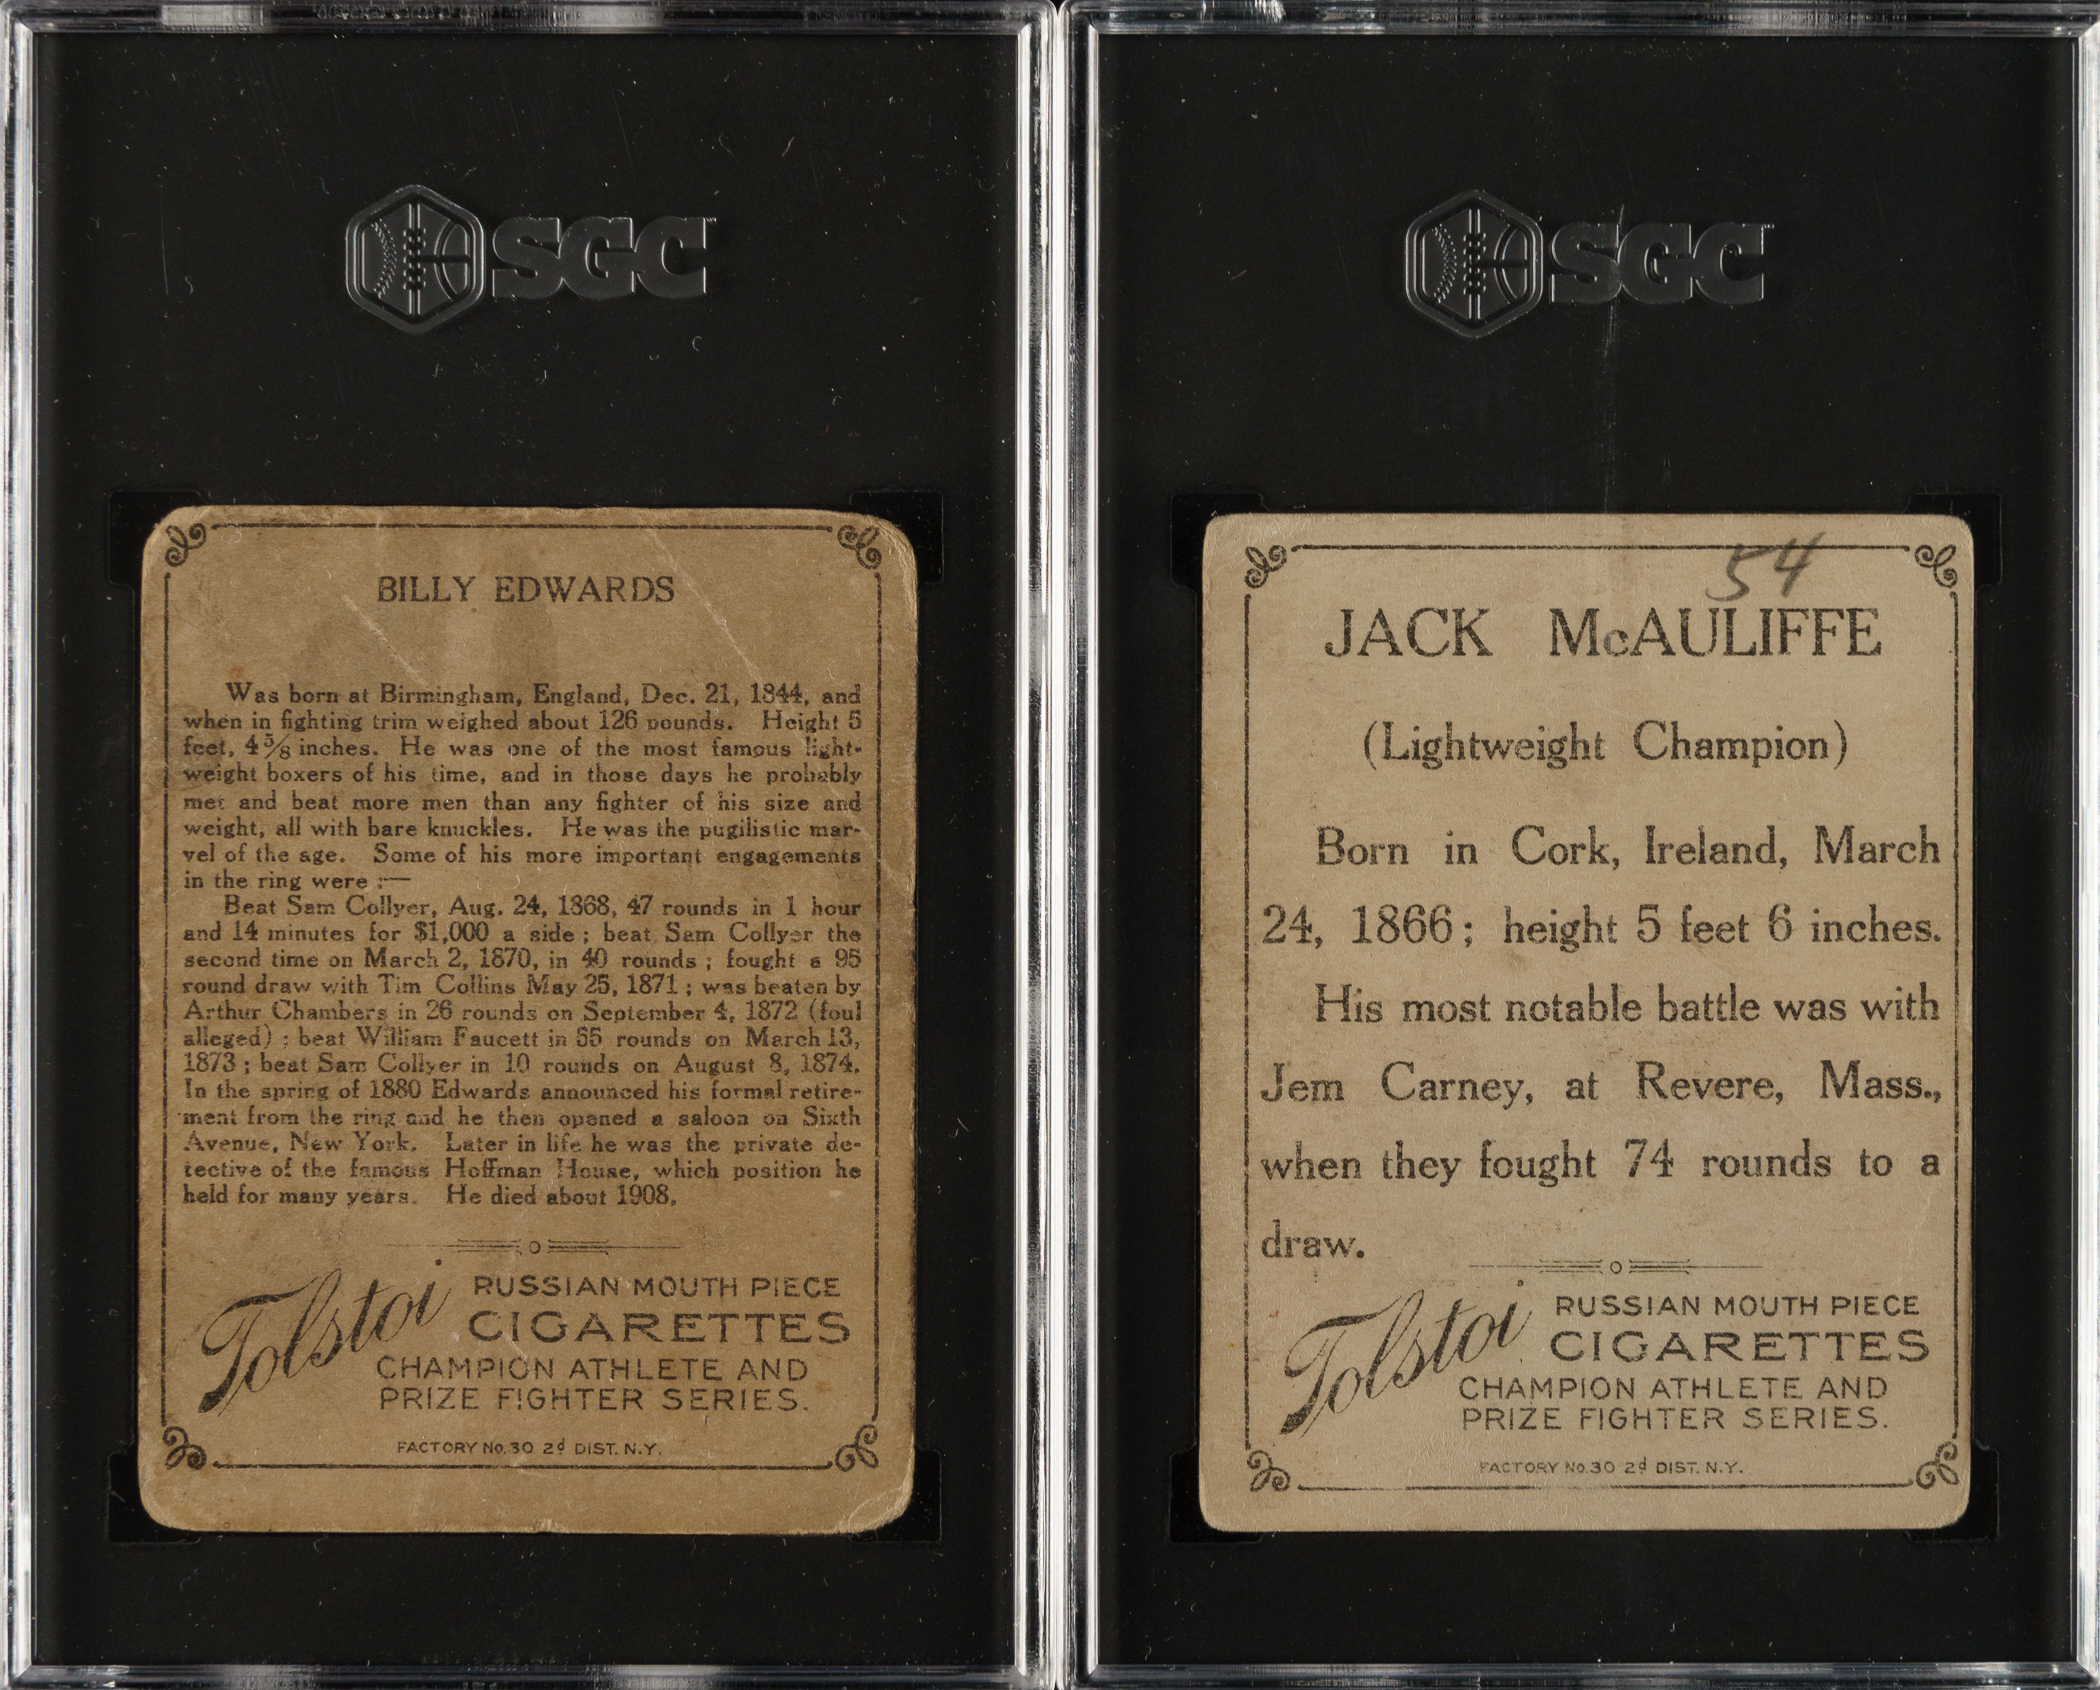 SGC
BILLY EDWARDS
Was born at Birmingham, England, Dec. 21, 1844, and
when in fighting trim weighed about 126 pounds. Height 5
feet, 4 5/8 inches. He was one of the most famous light-
weight boxers of his time, and in those days he probably
met and beat more men than any fighter of his size and
weight, all with bare knuckles. He was the pugilistic mar-
vel of the age. Some of his more important engagements
in the ring were :—
Beat Sam Collyer, Aug. 24, 1868, 47 rounds in 1 hour
and 14 minutes for $1,000 a side ; beat Sam Collyer the
second time on March 2, 1870, in 40 rounds ; fought a 95
round draw with Tim Collins May 25, 1871 ; was beaten by
Arthur Chambers in 26 rounds on September 4, 1872 (foul
alleged) ; beat William Faucett in 55 rounds on March 13,
1873 ; beat Sam Collyer in 10 rounds on August 8, 1874.
In the spring of 1880 Edwards announced his formal retire-
ment from the ring and he then opened a saloon on Sixth
Avenue, New York. Later in life he was the private de-
tective of the famous Hoffman House, which position he
held for many years. He died about 1908.
Tolstoi
RUSSIAN MOUTH PIECE
CIGARETTES
CHAMPION ATHLETE AND
PRIZE FIGHTER SERIES.
FACTORY No. 30 2d DIST. N.Y.
SGC
54
JACK McAULIFFE
(Lightweight Champion)
Born in Cork, Ireland, March
24, 1866 ; height 5 feet 6 inches.
His most notable battle was with
Jem Carney, at Revere, Mass.,
when they fought 74 rounds to a
draw.
Tolstoi
RUSSIAN MOUTH PIECE
CIGARETTES
CHAMPION ATHLETE AND
PRIZE FIGHTER SERIES.
FACTORY No. 30 2d DIST. N.Y.